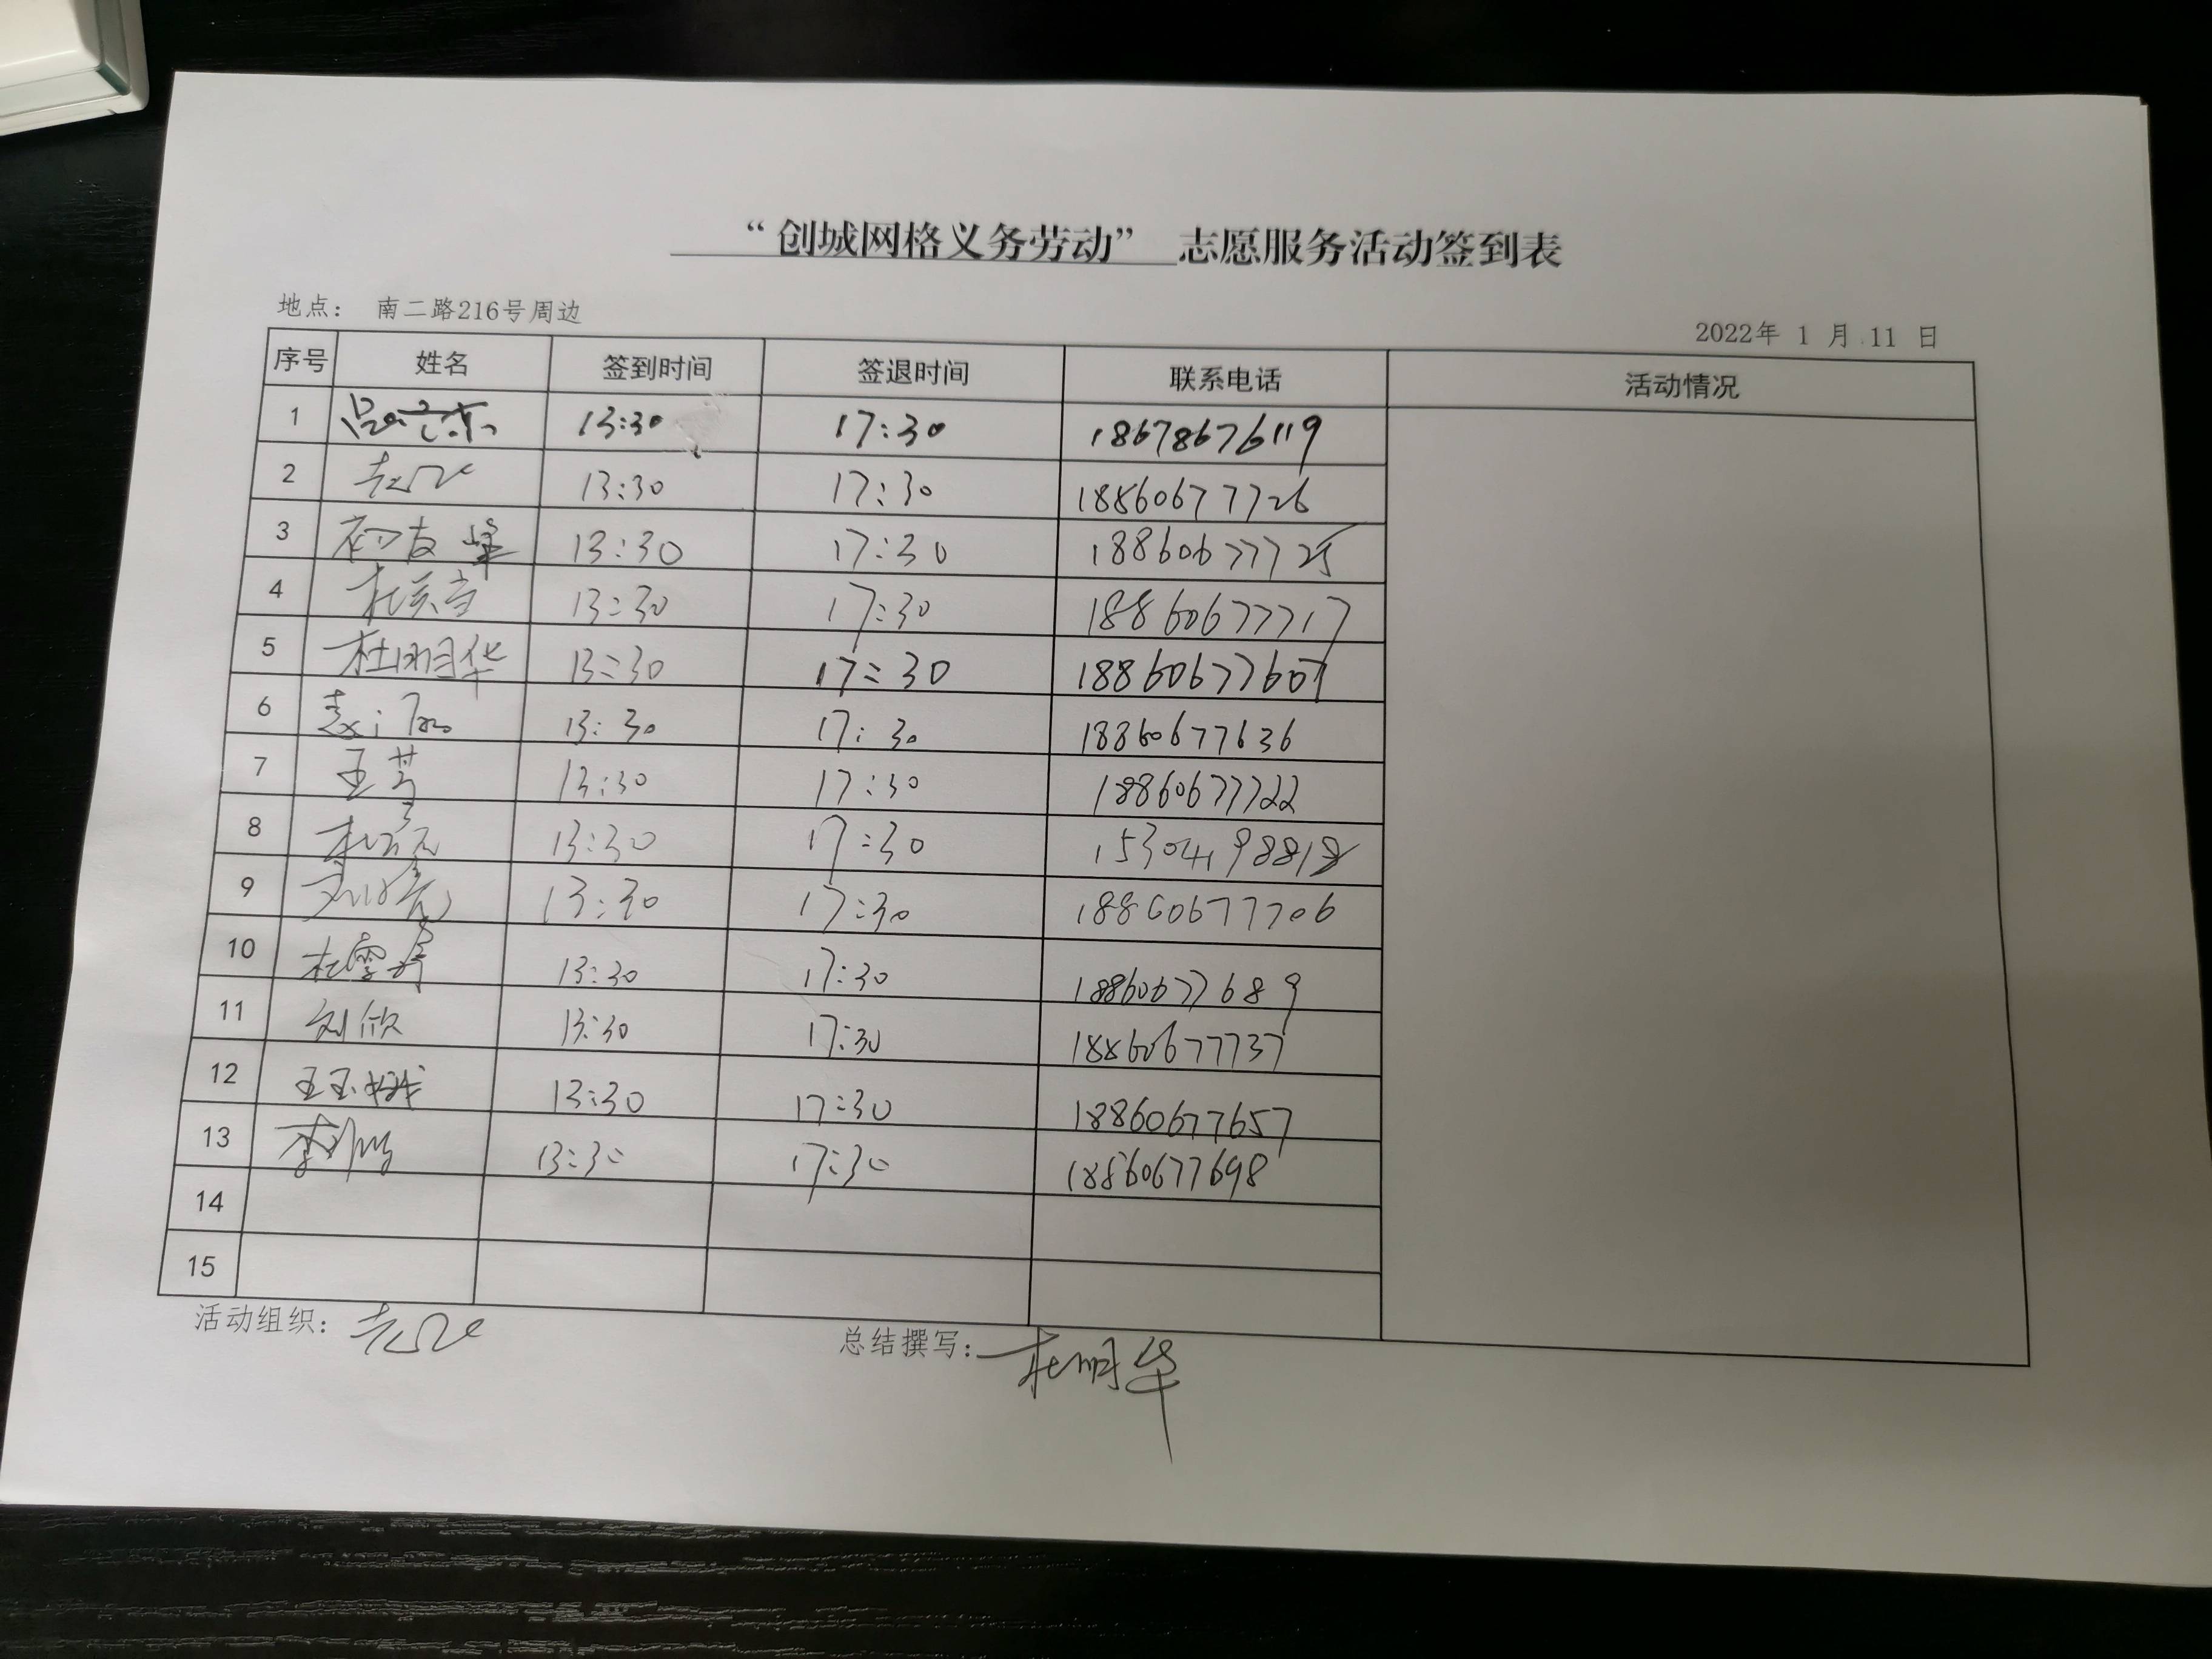 “创城网格义务劳动” 志愿服务活动签到表
地点： 南二路216号周边
2022年 1 月 11 日
序号 姓名 签到时间 签退时间 联系电话 活动情况
1 13:30 17:30 18678676119
2 13:30 17:30 18860677726
3 初友峰 13:30 17:30 18860677725
4 13:30 17:30 18860677717
5 杜明华 13:30 17:30 18860677607
6 13:30 17:30 18860677636
7 王芳 13:30 17:30 18860677722
8 13:30 17:30
9 13:30 17:30 18860677706
10 13:30 17:30 18860677689
11 刘欣 13:30 17:30 18860677737
12 13:30 17:30 18860677657
13 13:30 17:30 18860677698
14
15
活动组织：
总结撰写： 杜明华